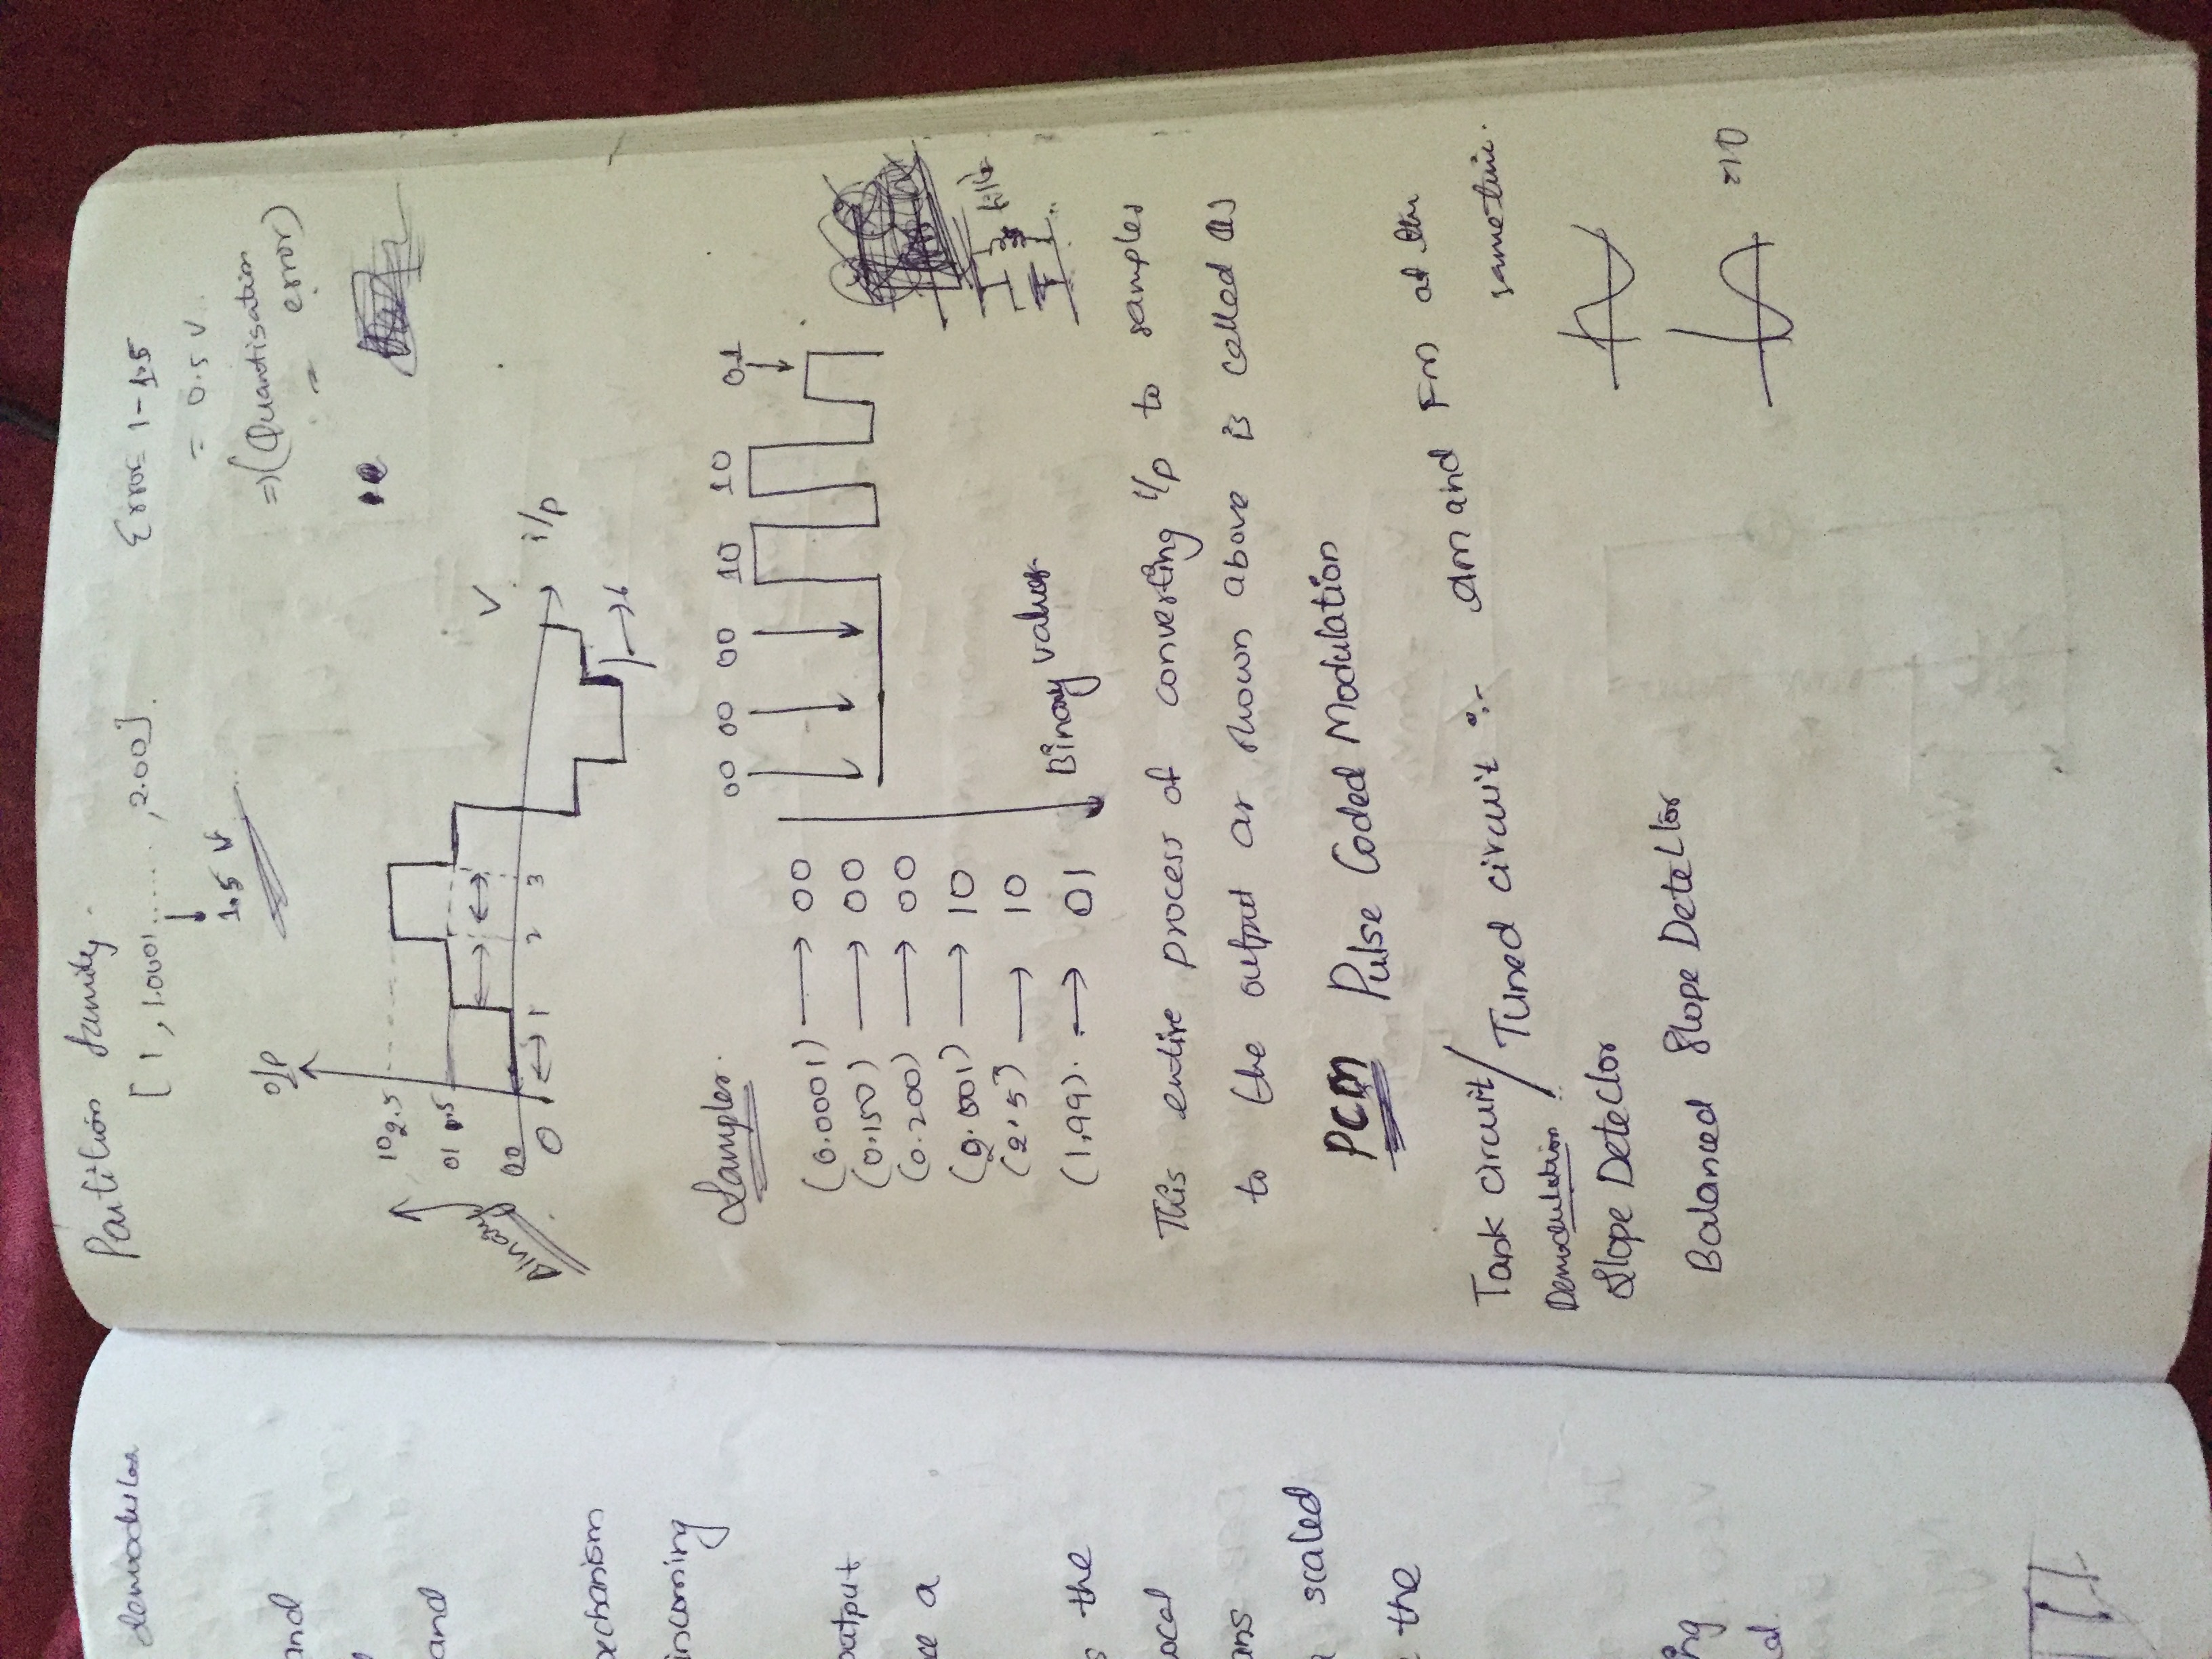 demodulor
and
and
mechanism
incoming
output
ce a
s the
local
ans
scaled
the
ing
al.
Partition family.
[1, 1.0001......, 2.00].
1.5 V
Error = 1-1.5
= 0.5 V.
=> (Quantisation
error)
o/p
10 2.5
01 1.5
00
0 1 2 3
Binary
V
i/p
Samples.
00 00 00 10 10 01
(0.0001) → 00
(0.150) → 00
(0.200) → 00
(2.001) → 10
(2.5) → 10
(1.99). → 01
Binary values.
This entire process of converting i/p to samples
to the output as shown above is called as
PCM Pulse Coded Modulation
Tank circuit/ Tuned circuit :- AM and FM at the
same time.
Demodulation :
Slope Detector
Balanced Slope Detector